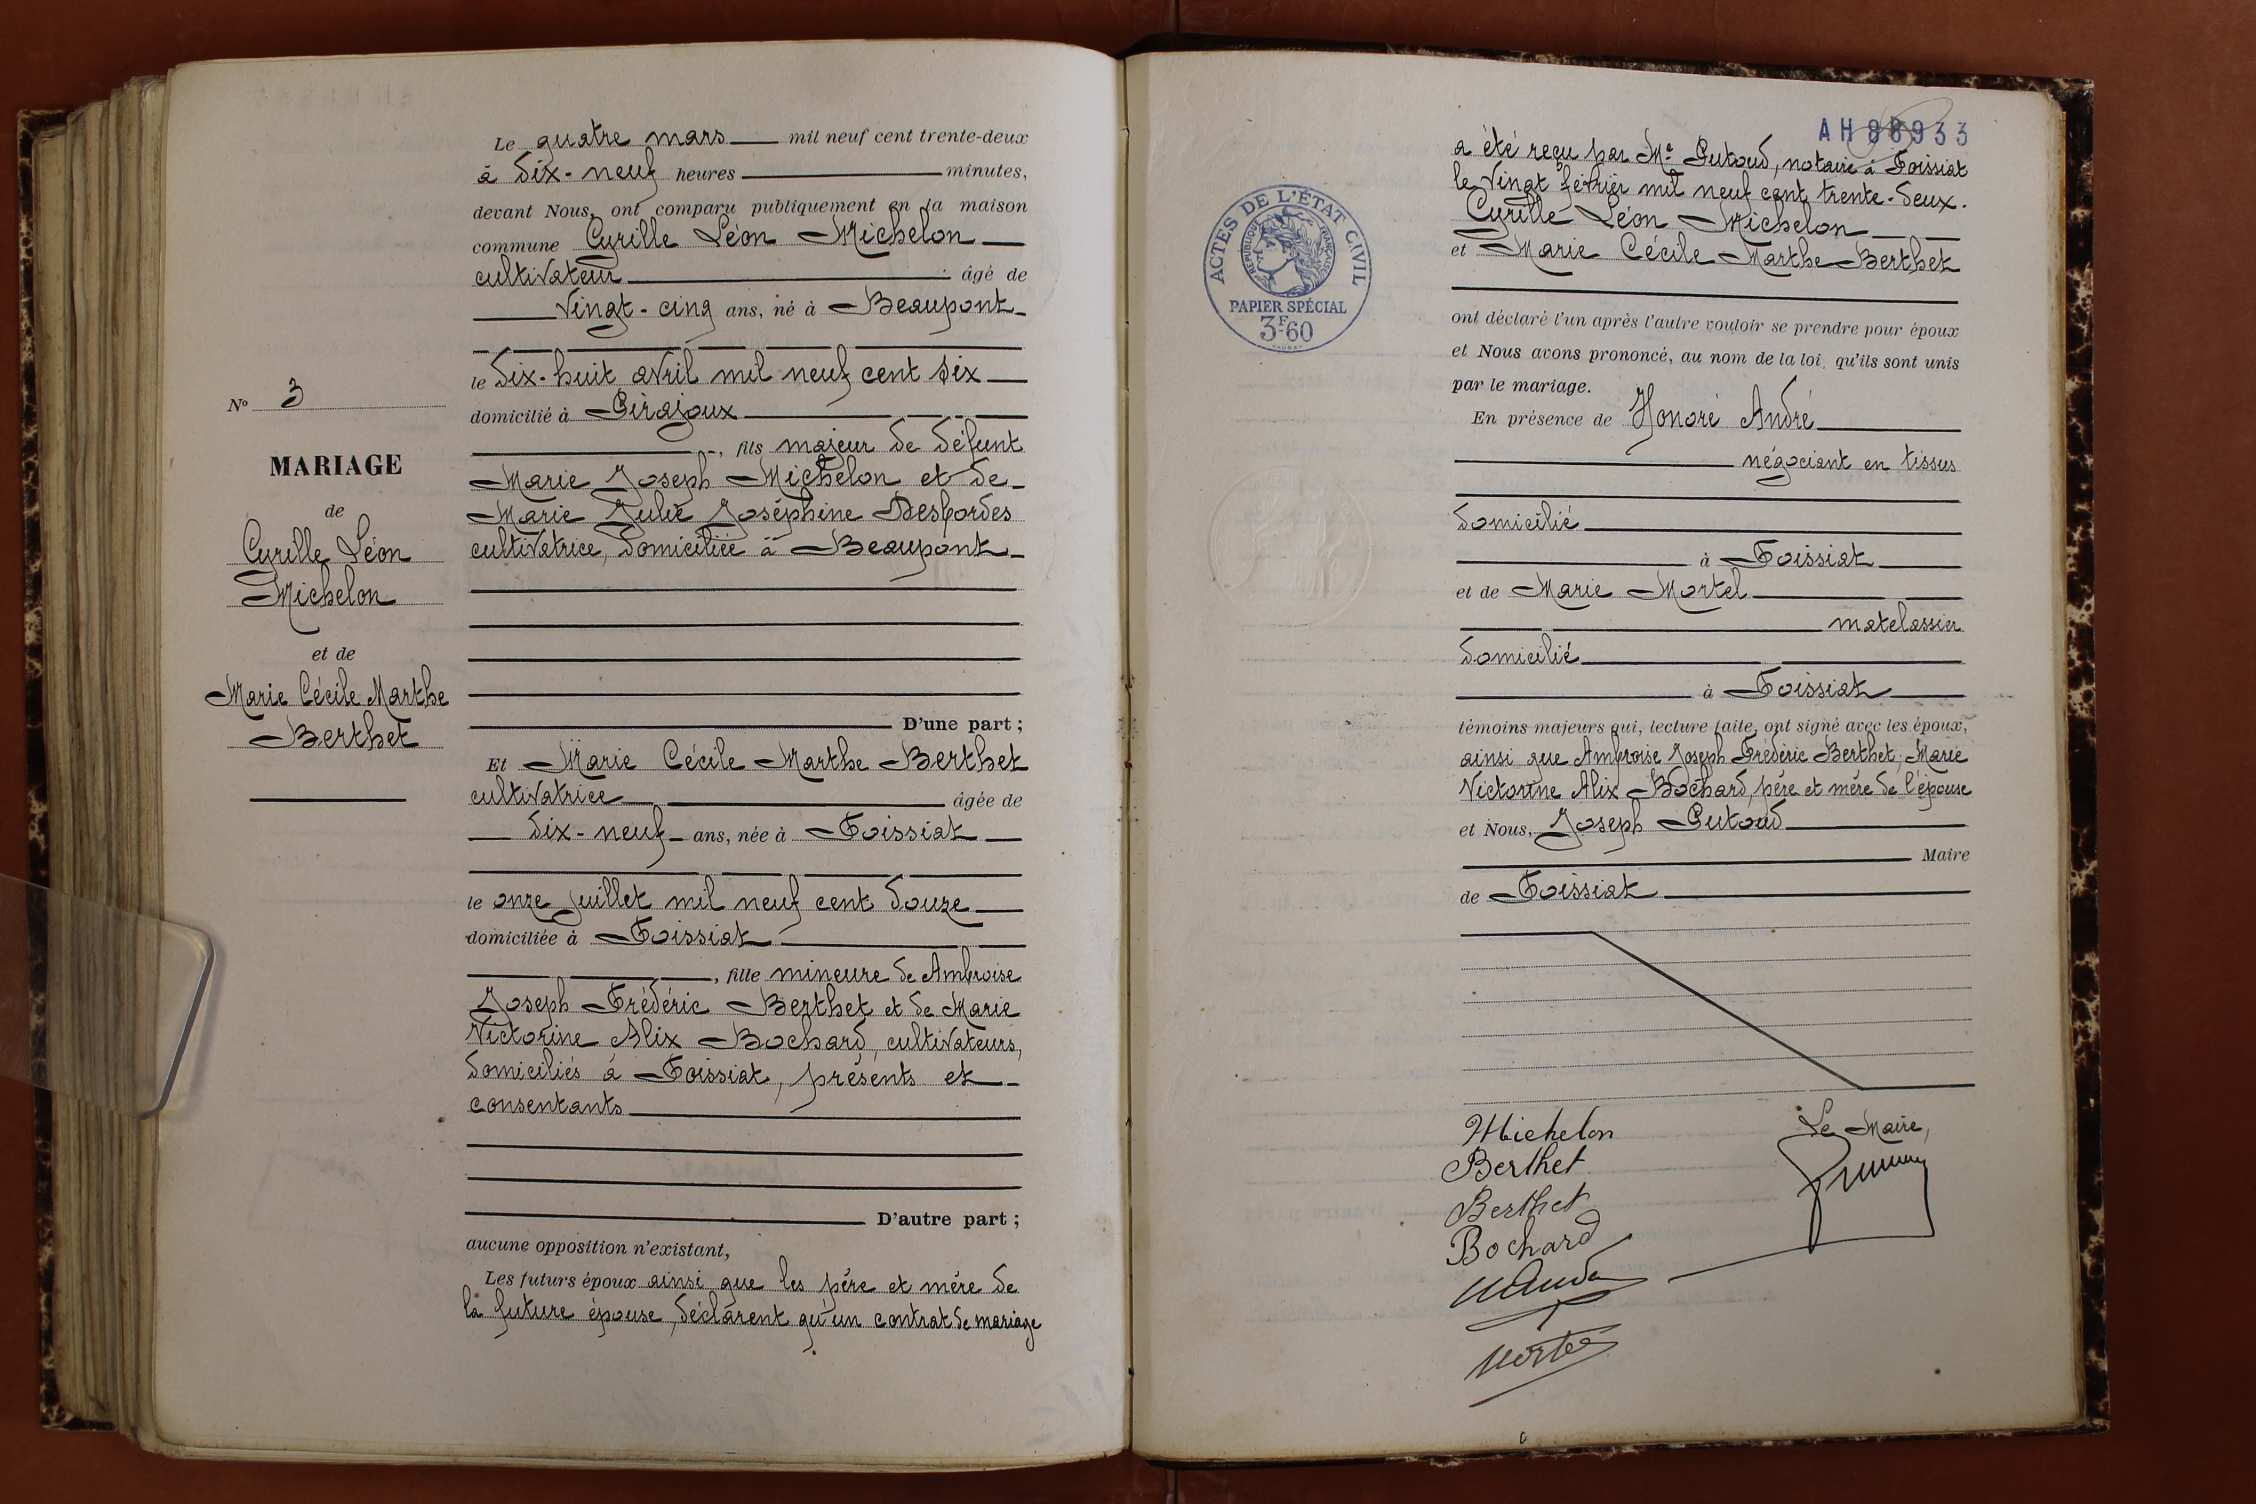 N° 3
MARIAGE
de
Cyrille Léon
Michelon
et de
Marie Cécile Marthe
Berthet
Le quatre mars mil neuf cent trente-deux
à dix-neuf heures minutes,
devant Nous, ont comparu publiquement en la maison
commune Cyrille Léon Michelon
cultivateur âgé de
vingt-cinq ans, né à Beaupont
le dix-huit avril mil neuf cent six
domicilié à Pirajoux
, fils majeur de défunt
Marie Joseph Michelon et de
Marie Julie Joséphine Desbordes
cultivatrice, domiciliée à Beaupont
D'une part ;
Et Marie Cécile Marthe Berthet
cultivatrice âgée de
dix-neuf ans, née à Foissiat
le onze juillet mil neuf cent douze
domiciliée à Foissiat
, fille mineure de Ambroise
Joseph Frédéric Berthet et de Marie
Victorine Alix Bochard, cultivateurs,
domiciliés à Foissiat, présents et
consentants
D'autre part ;
aucune opposition n'existant,
Les futurs époux ainsi que les père et mère de
la future épouse, déclarent qu'un contrat de mariage
AH 88933
ACTES DE L'ÉTAT CIVIL
RÉPUBLIQUE FRANÇAISE
PAPIER SPÉCIAL
3F.60
a été reçu par Me Putoud, notaire à Foissiat
le vingt février mil neuf cent trente-deux.
Cyrille Léon Michelon
et Marie Cécile Marthe Berthet
ont déclaré l'un après l'autre vouloir se prendre pour époux
et Nous avons prononcé, au nom de la loi, qu'ils sont unis
par le mariage.
En présence de Honoré André
négociant en tissus
domicilié
à Foissiat
et de Marie Mortel
matelassier
domicilié
à Foissiat
témoins majeurs qui, lecture faite, ont signé avec les époux,
ainsi que Ambroise Joseph Frédéric Berthet, Marie
Victorine Alix Bochard, père et mère de l'épouse
et Nous, Joseph Putoud
Maire
de Foissiat
Michelon
Berthet
Berthet
Bochard
Le Maire,